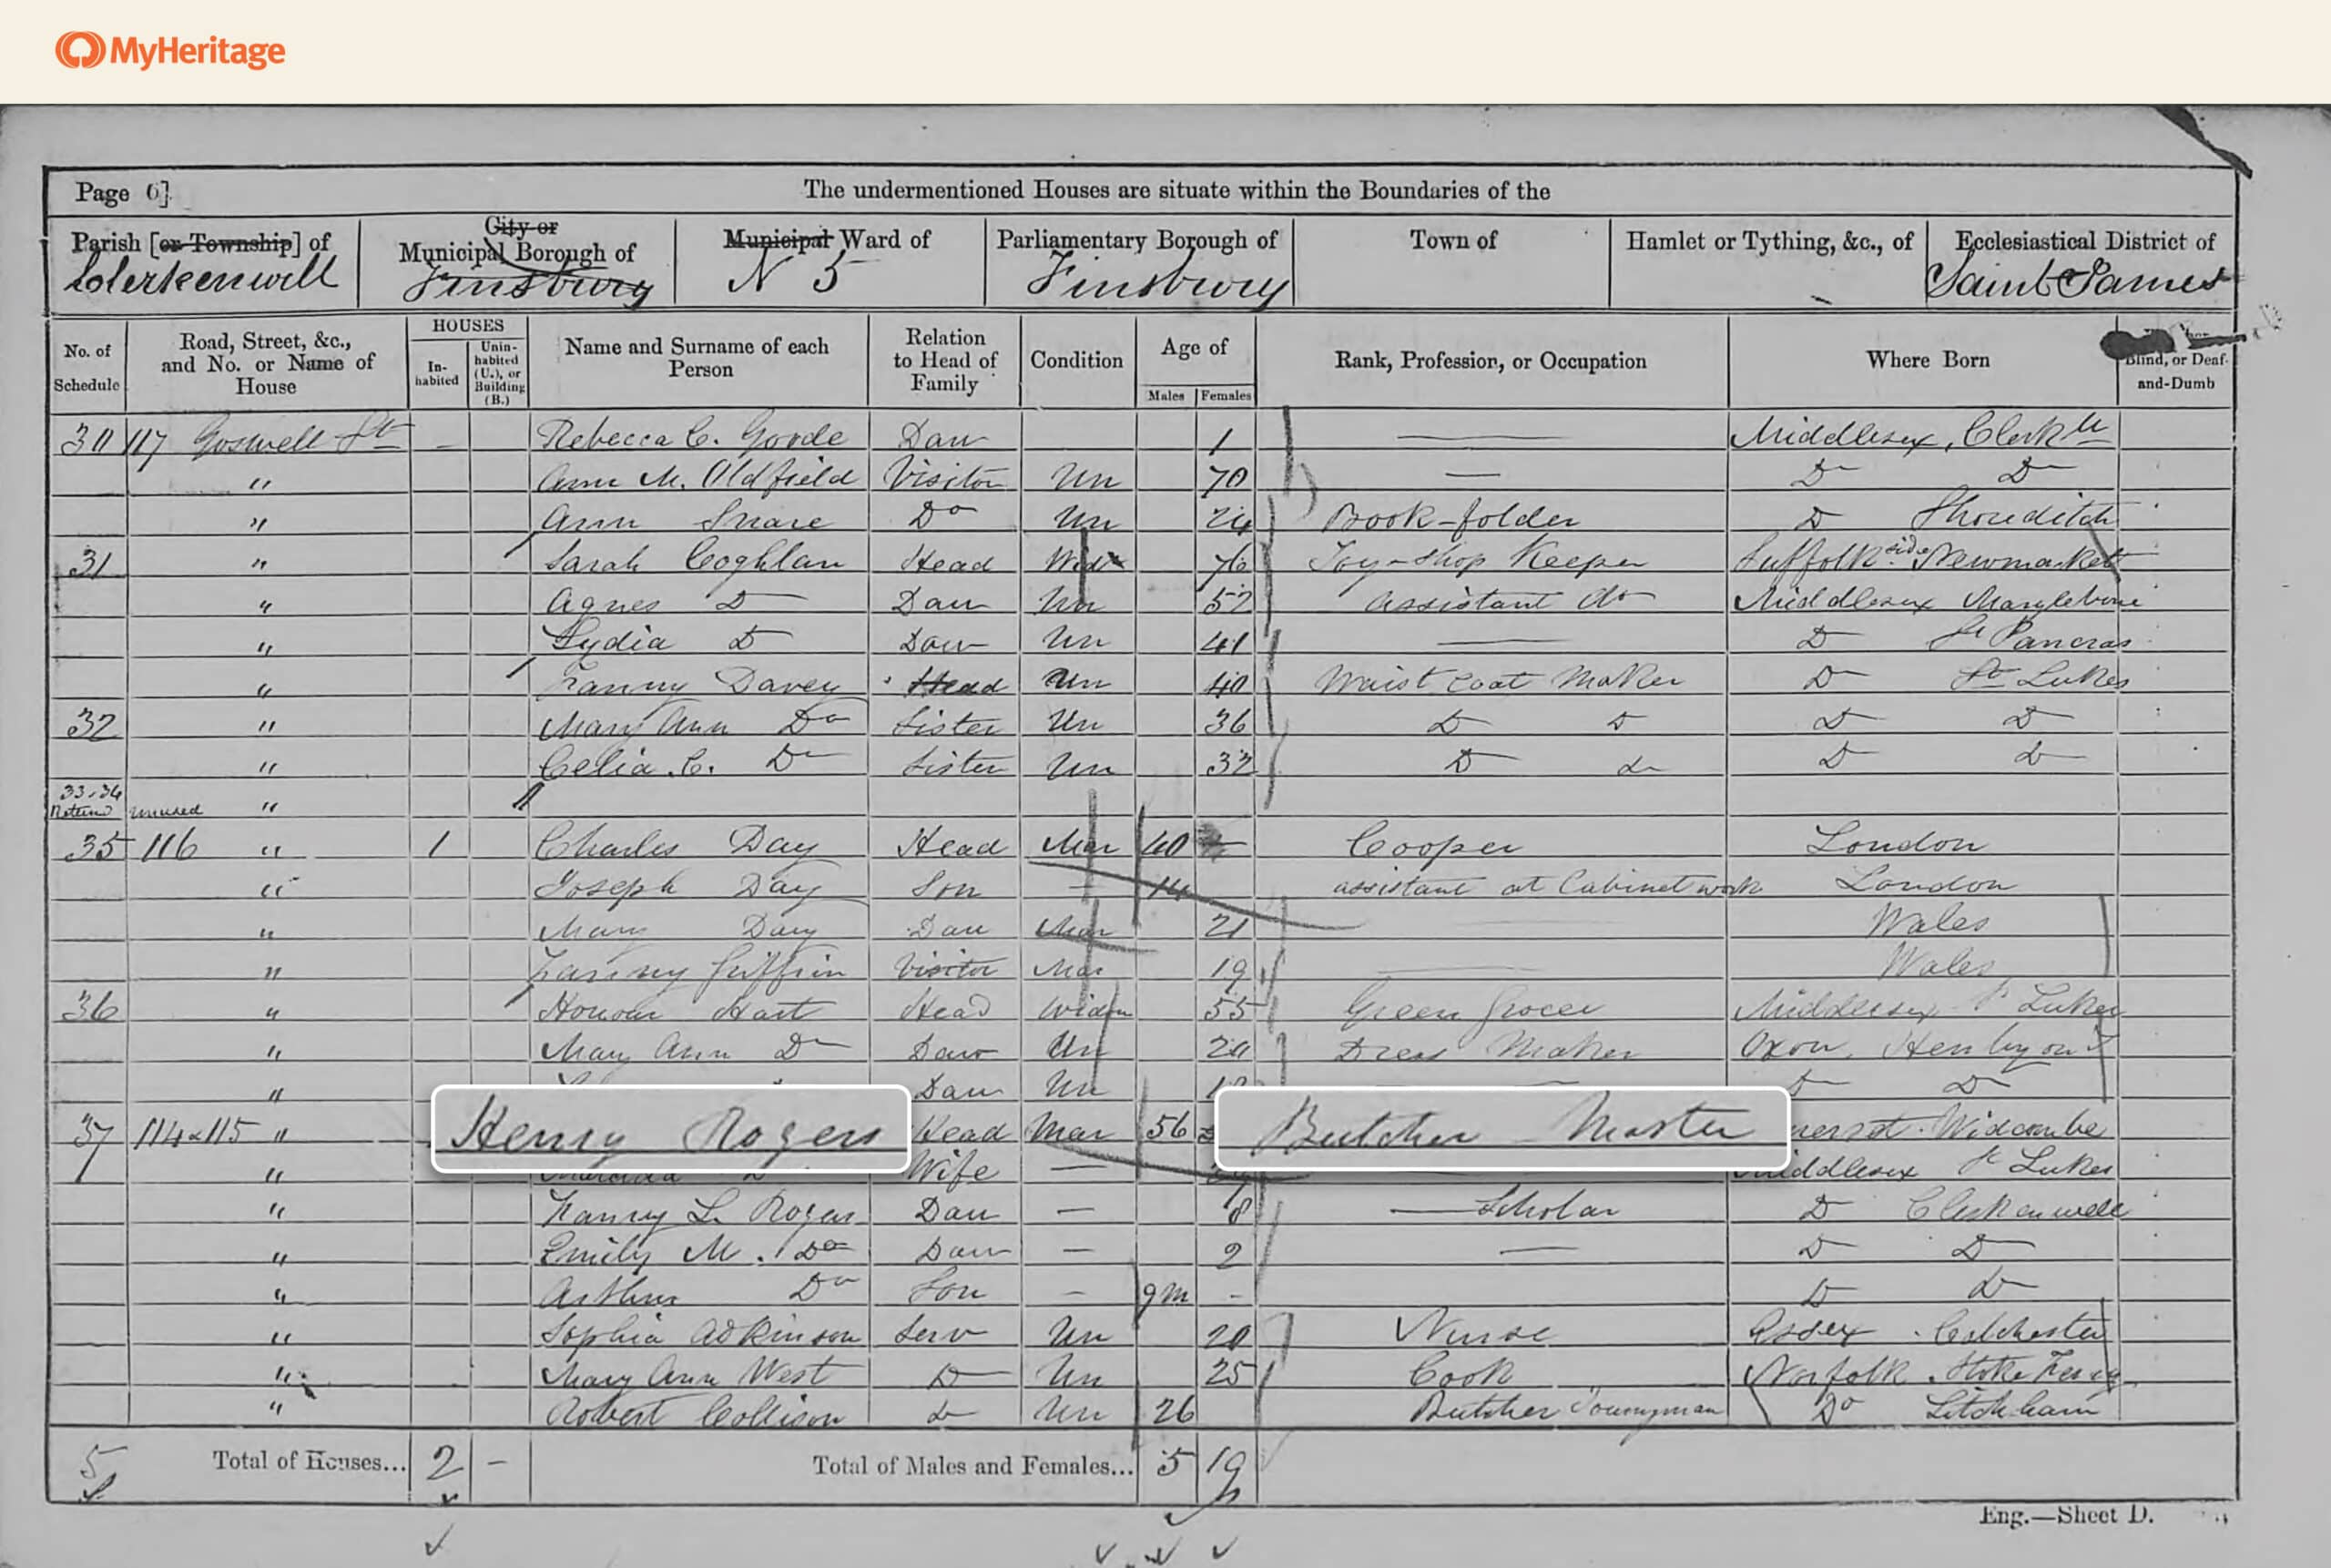 MyHeritage
Page 6]
The undermentioned Houses are situate within the Boundaries of the
Parish [or Township] of
City or
Municipal Borough of
Municipal Ward of
Parliamentary Borough of
Town of
Hamlet or Tything, &c., of
Ecclesiastical District of
Clerkenwell
Finsbury
N 5
Finsbury
Saint James
No. of
Schedule
Road, Street, &c.,
and No. or Name of
House
HOUSES
In-
habited
Unin-
habited
(U.), or
Building
(B.)
Name and Surname of each
Person
Relation
to Head of
Family
Condition
Age of
Males Females
Rank, Profession, or Occupation
Where Born
Blind, or Deaf-
and-Dumb
30 117 Goswell St Rebecca C. Goode Daur 1 Middlesex, Clerkll
" Ann M. Oldfield Visitor Un 70 Do Do
" Ann Snare Do Un 24 Book-folder Do Shoreditch
31 " Sarah Coghlan Head Widr 76 Toy-Shop Keeper Suffolk side Newmarket
" Agnes Do Daur Un 52 Assistant do Middlesex Marylebone
" Lydia Do Daur Un 41 Do St Pancras
" Fanny Davey Head Un 40 Waist coat Maker Do St Lukes
32 " Mary Ann Do Sister Un 36 Do Do Do Do
" Celia. C. Do Sister Un 32 Do Do Do Do
33-34 unused "
35 116 " 1 Charles Day Head Mar 40 Cooper London
" Joseph Day Son — 14 assistant at Cabinet work London
" Mary Day Dau Mar 21 Wales
" Fanny Griffin Visitor Mar 19 Wales
36 " Honour Hart Head Widow 55 Green Grocer Middlesex St Lukes
" Mary Ann Do Daur Un Dress Maker Oxon. Henley on T
" Daur Un Do Do
37 114 & 115 " Henry Rogers Head Mar 56 Butcher Master Widcombe
" Wife — Middlesex St Lukes
" Fanny L. Rogers Dau — 8 Scholar Do Clerkenwell
" Emily M. Do Daur — 2 — Do Do
" Arthur Do Son — 9m - Do Do
" Sophia Adkinson Serv Un 20 Nurse Essex Colchester
" Mary Ann West Do Un 25 Cook Norfolk Stoke Ferry
" Robert Collison Do Un 26 Butcher Journyman Do Litcham
5 Total of Houses... 2 – Total of Males and Females... 5 19
Eng.—Sheet D.